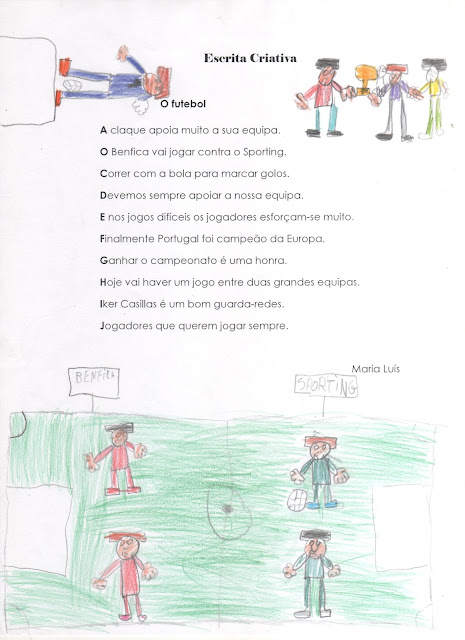 Escrita Criativa
O futebol
A claque apoia muito a sua equipa.
O Benfica vai jogar contra o Sporting.
Correr com a bola para marcar golos.
Devemos sempre apoiar a nossa equipa.
E nos jogos difíceis os jogadores esforçam-se muito.
Finalmente Portugal foi campeão da Europa.
Ganhar o campeonato é uma honra.
Hoje vai haver um jogo entre duas grandes equipas.
Iker Casillas é um bom guarda-redes.
Jogadores que querem jogar sempre.
Maria Luís
BENFICA
SPORTING